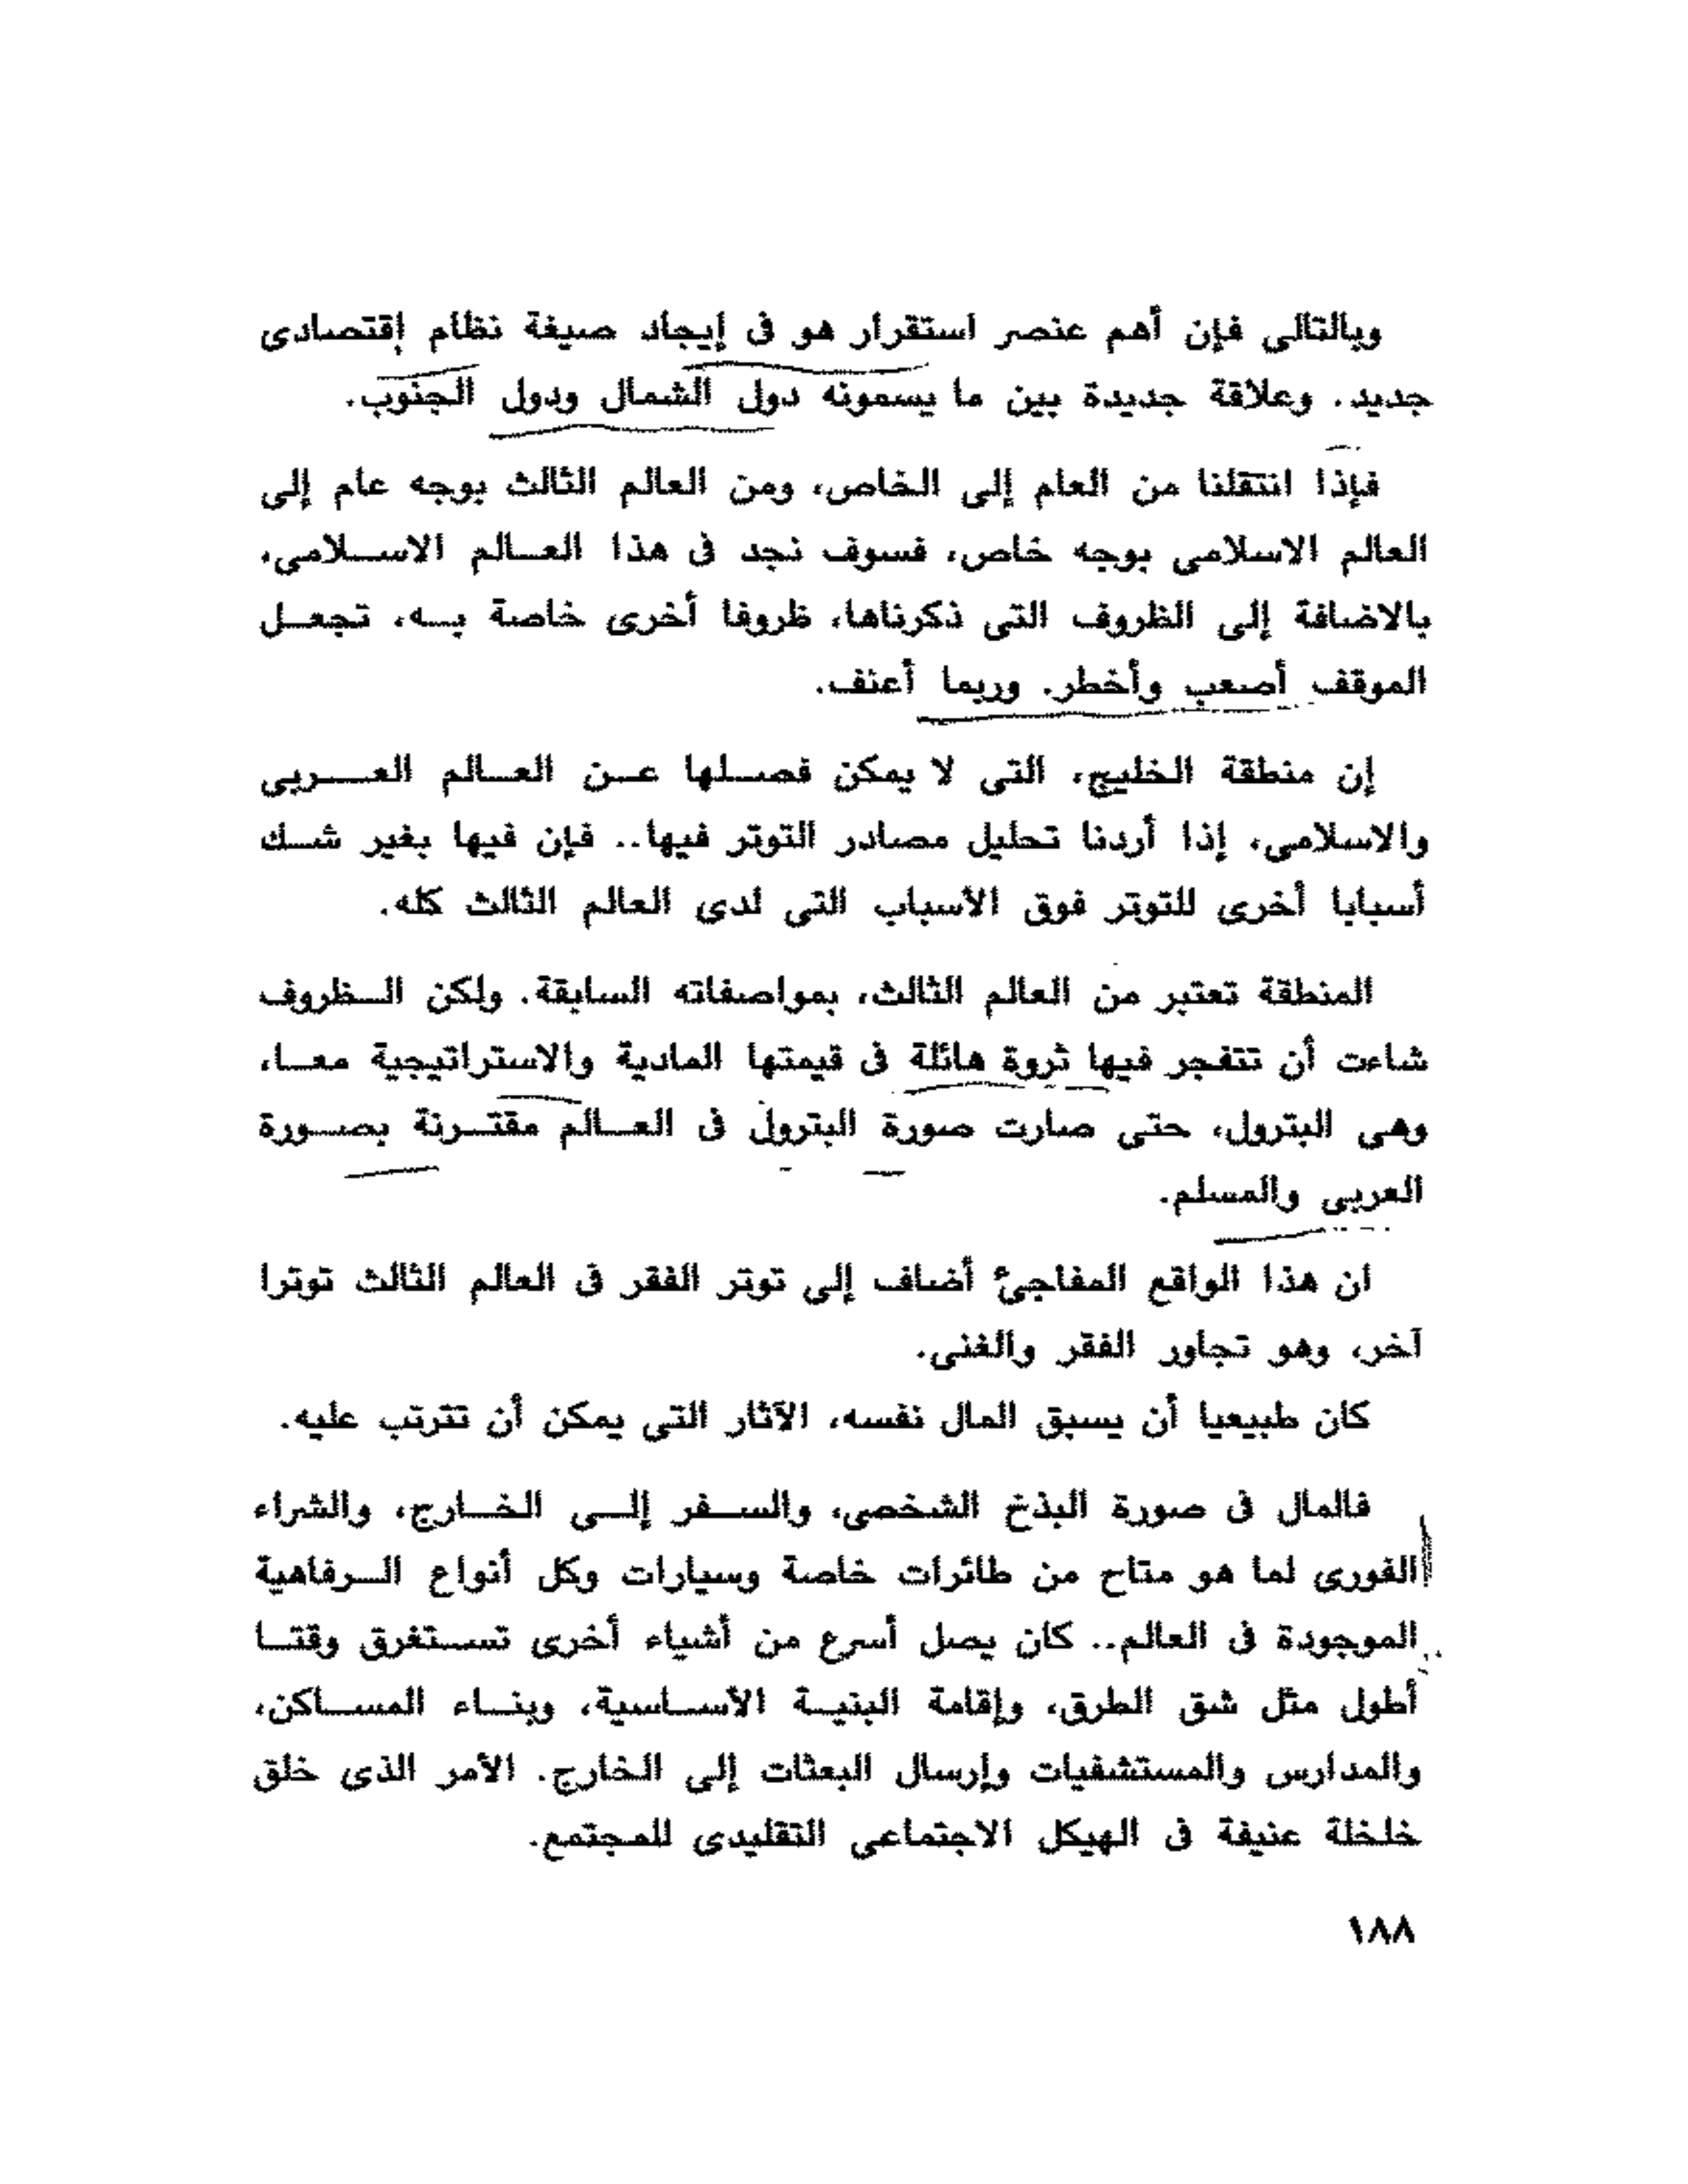 وبالتالى فإن أهم عنصر استقرار هو فى إيجاد صيغة نظام إقتصادى
جديد. وعلاقة جديدة بين ما يسمونه دول الشمال ودول الجنوب.
فإذا انتقلنا من العام إلى الخاص، ومن العالم الثالث بوجه عام إلى
العالم الاسلامى بوجه خاص، فسوف نجد فى هذا العالم الاسلامى،
بالاضافة إلى الظروف التى ذكرناها، ظروفا أخرى خاصة به، تجعل
الموقف أصعب وأخطر. وربما أعنف.
إن منطقة الخليج، التى لا يمكن فصلها عن العالم العربى
والاسلامى، إذا أردنا تحليل مصادر التوتر فيها.. فإن فيها بغير شك
أسبابا أخرى للتوتر فوق الأسباب التى لدى العالم الثالث كله.
المنطقة تعتبر من العالم الثالث، بمواصفاته السابقة. ولكن الظروف
شاءت أن تتفجر فيها ثروة هائلة فى قيمتها المادية والاستراتيجية معا،
وهى البترول، حتى صارت صورة البترول فى العالم مقترنة بصورة
العربى والمسلم.
ان هذا الواقع المفاجئ أضاف إلى توتر الفقر فى العالم الثالث توترا
آخر، وهو تجاور الفقر والغنى.
كان طبيعيا أن يسبق المال نفسه، الآثار التى يمكن أن تترتب عليه.
فالمال فى صورة البذخ الشخصى، والسفر إلى الخارج، والشراء
الفورى لما هو متاح من طائرات خاصة وسيارات وكل أنواع الرفاهية
الموجودة فى العالم.. كان يصل أسرع من أشياء أخرى تستغرق وقتا
أطول مثل شق الطرق، وإقامة البنية الأساسية، وبناء المساكن،
والمدارس والمستشفيات وإرسال البعثات إلى الخارج. الأمر الذى خلق
خلخلة عنيفة فى الهيكل الاجتماعى التقليدى للمجتمع.
١٨٨